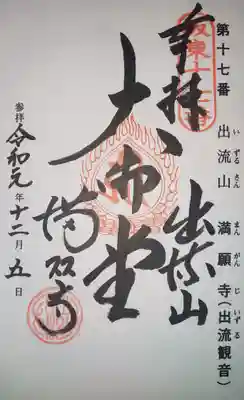 第十七番 出流山 満願寺(出流観音)
いずるさん まんがんじ いずる
奉拝
出流山
大御堂
満願寺
参拝 令和元年十二月五日